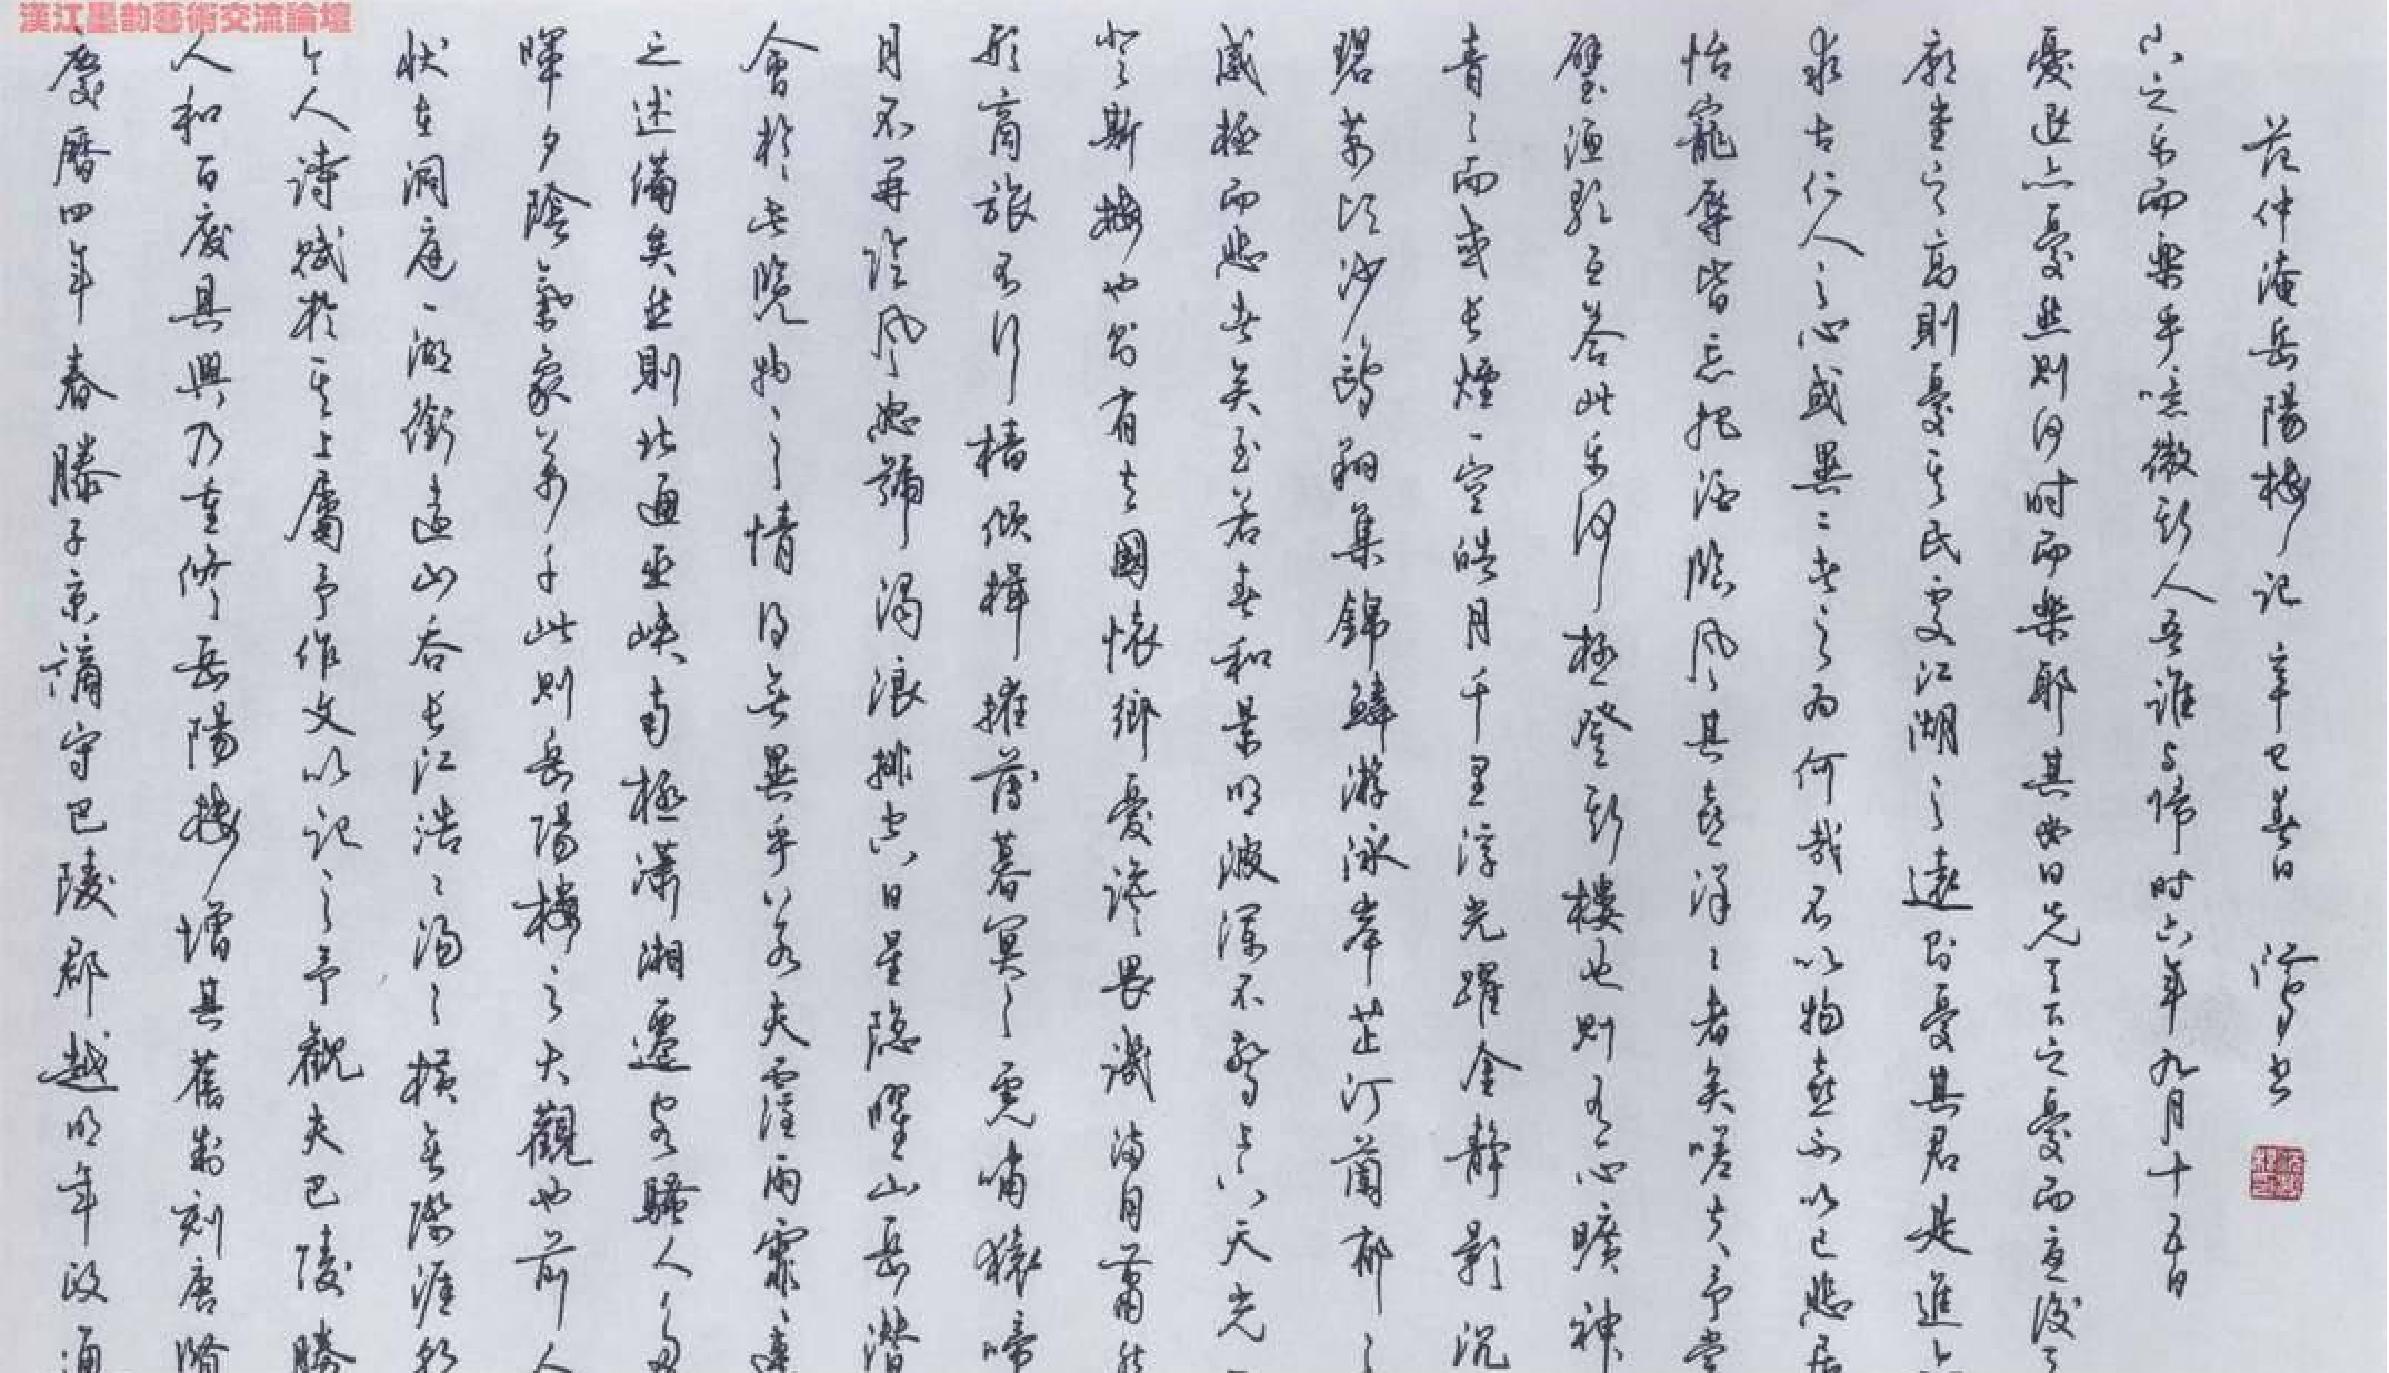 漢江墨韵藝術交流論壇
慶曆四年春滕子京謫守巴陵郡越明年政通
人和百廢具興乃重修岳陽樓增其舊制刻唐賢
今人詩賦於其上屬予作文以記之予觀夫巴陵勝
狀在洞庭一湖銜遠山吞長江浩浩湯湯橫無際涯朝
暉夕陰氣象萬千此則岳陽樓之大觀也前人
之述備矣然則北通巫峽南極瀟湘遷客騷人多
會於此覽物之情得無異乎若夫霪雨霏霏連
月不開陰风怒號濁浪排空日星隱曜山岳潛
形商旅不行檣傾楫摧薄暮冥冥虎嘯猿啼
登斯樓也則有去國懷鄉憂讒畏譏滿目蕭然
感極而悲者矣至若春和景明波瀾不驚上下天光一
碧萬頃沙鷗翔集錦鱗游泳岸芷汀蘭郁郁
青青而或長煙一空皓月千里浮光躍金靜影沉
璧漁歌互答此乐何極登斯樓也則有心曠神
怡寵辱皆忘把酒臨风其喜洋洋者矣嗟夫予嘗
求古仁人之心或異二者之為何哉不以物喜不以己悲居
廟堂之高則憂其民處江湖之遠則憂其君是進亦
憂退亦憂然則何时而樂耶其必曰先天下之憂而憂後天
下之乐而樂乎噫微斯人吾誰与歸时六年九月十五日
范仲淹岳陽樓記 辛巳春日 書